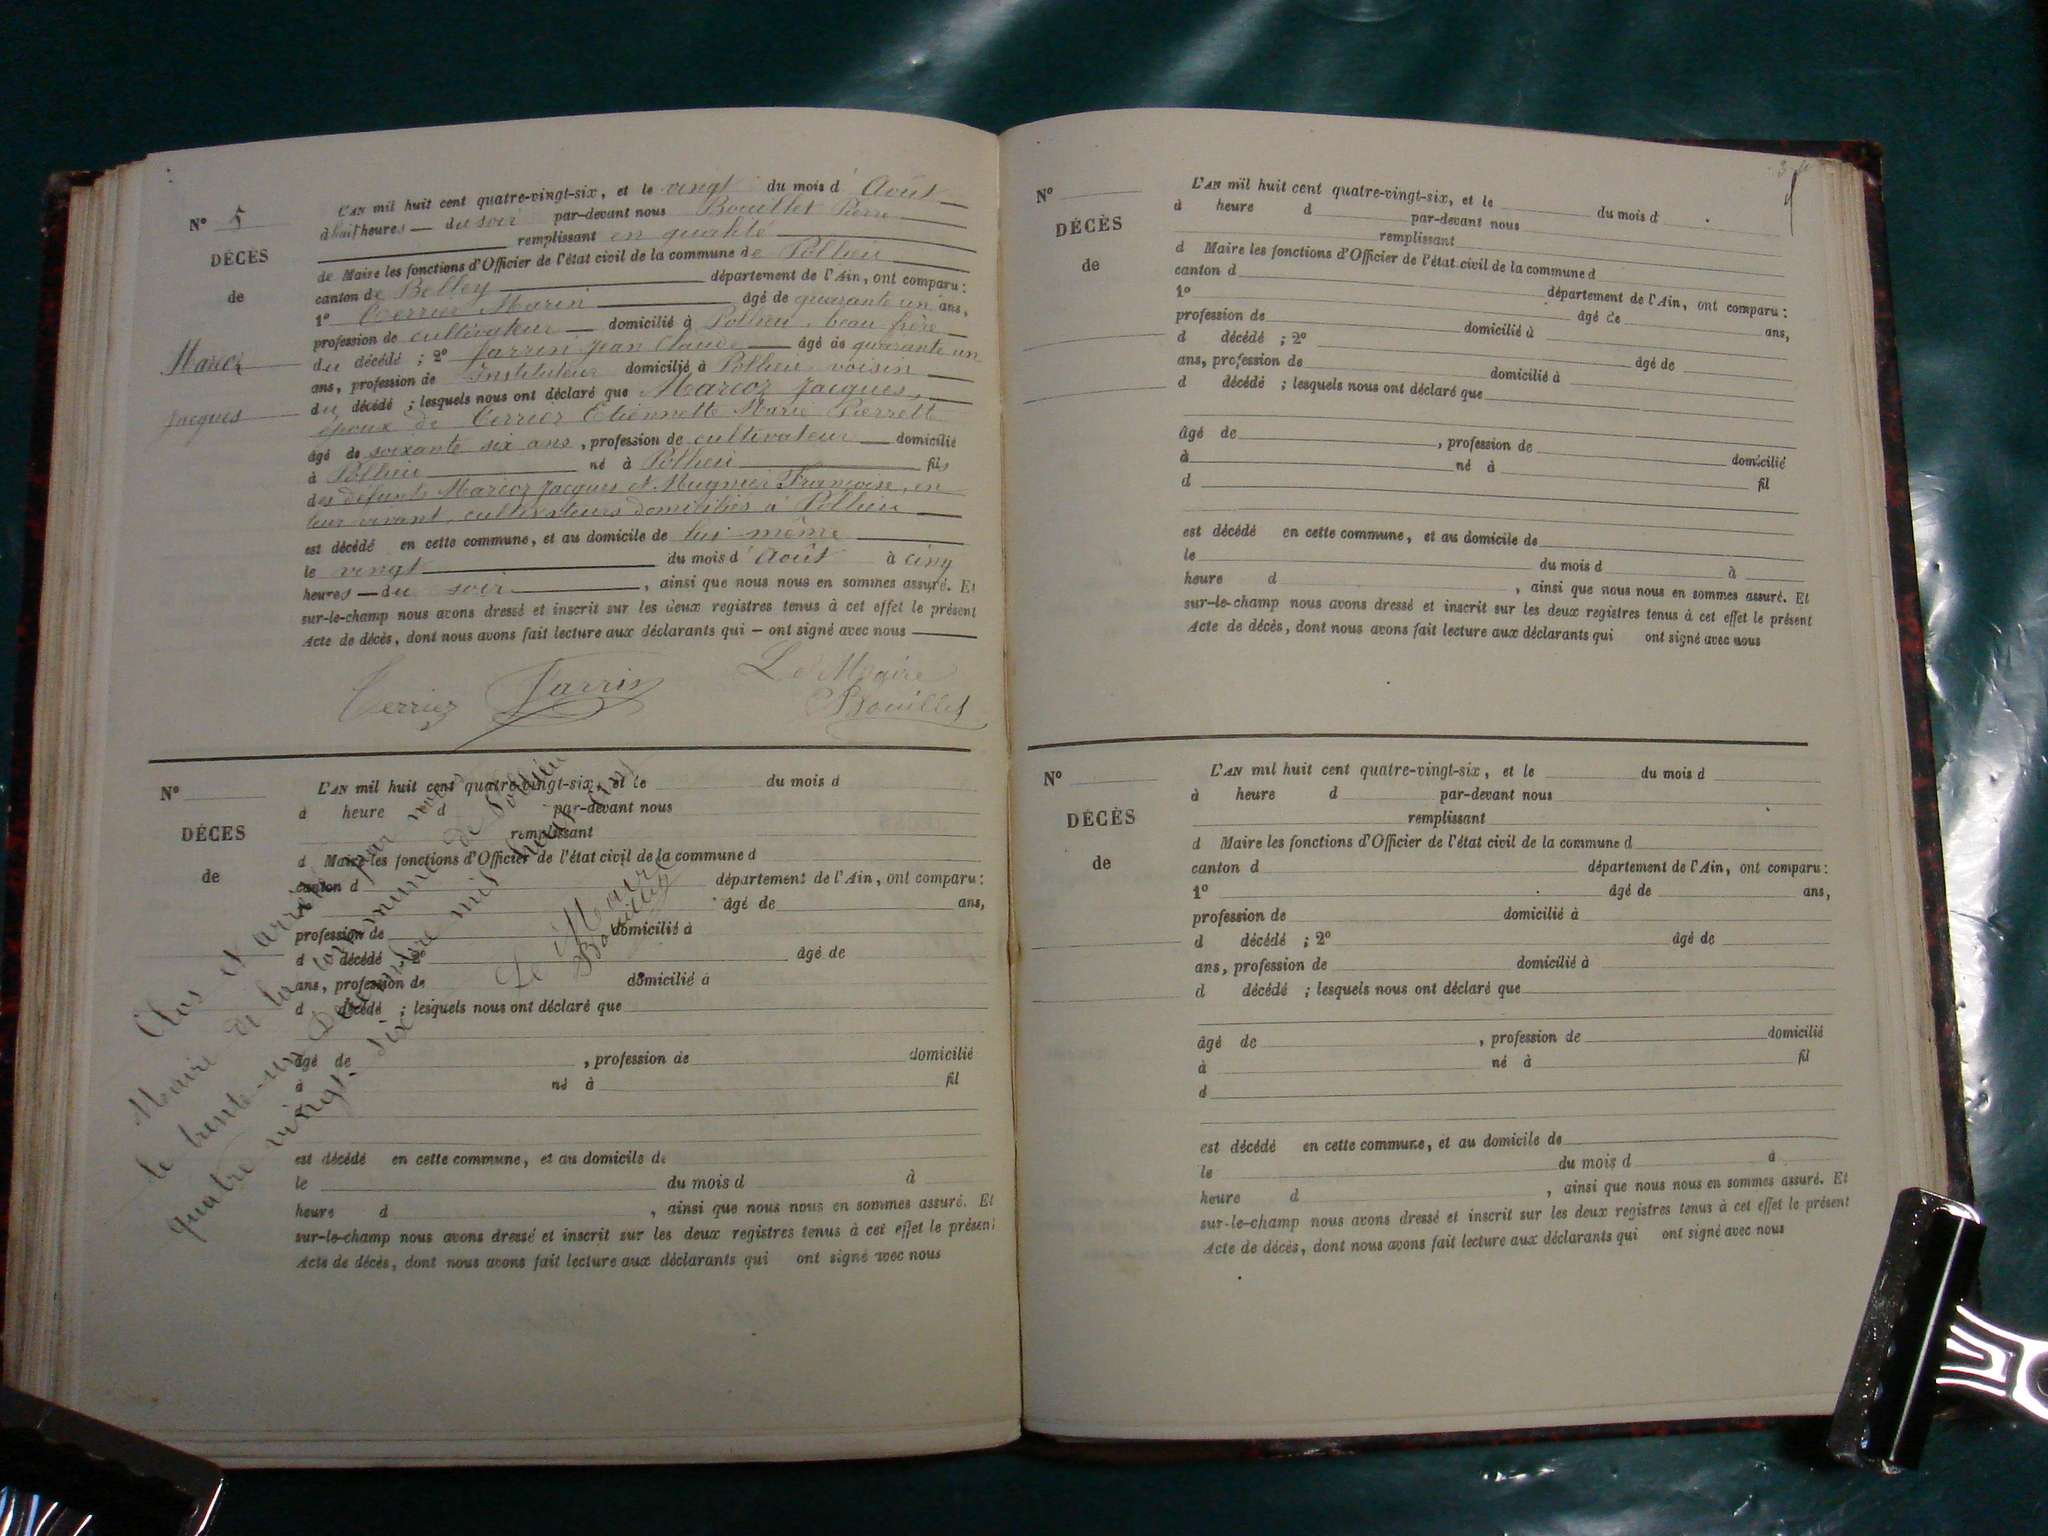 N° 5
DÉCÈS
de
Marcoz
Jacques
L'AN mil huit cent quatre-vingt-six, et le vingt du mois d' Août
à huit heures du soir par-devant nous Bouillet Pierre
remplissant en qualité
de Maire les fonctions d'Officier de l'état civil de la commune de Pollieu
canton de Belley département de l'Ain, ont comparu :
1° Cerrier Marin âgé de quarante un ans,
profession de cultivateur domicilié à Pollieu, beau frère
du décédé ; 2° Jarrin Jean Claude âgé de quarante un
ans, profession de Instituteur domicilié à Pollieu voisin
du décédé ; lesquels nous ont déclaré que Marcoz Jacques,
époux de Cerrier Etiennette Marie Pierrette
âgé de soixante six ans, profession de cultivateur domicilié
à Pollieu né à Pollieu fils
des défunts Marcoz Jacques et Mugnier Françoise, en
leur vivant, cultivateurs domiciliés à Pollieu
est décédé en cette commune, et au domicile de lui-même
le vingt du mois d' Août à cinq
heures du soir, ainsi que nous nous en sommes assuré. Et
sur-le-champ nous avons dressé et inscrit sur les deux registres tenus à cet effet le présent
Acte de décès, dont nous avons fait lecture aux déclarants qui ont signé avec nous
Jarrin
Le Maire
Bouillet
N°
DÉCES
de
L'AN mil huit cent quatre-vingt-six, et le du mois d
à heure d par-devant nous
remplissant
d Maire les fonctions d'Officier de l'état civil de la commune d
canton d département de l'Ain, ont comparu :
âgé de ans,
profession de domicilié à
d décédé 2° âgé de
ans, profession de domicilié à
d décédé ; lesquels nous ont déclaré que
âgé de , profession de domicilié
à né à fil
est décédé en cette commune, et au domicile de
le du mois d à
heure d , ainsi que nous nous en sommes assuré. Et
sur-le-champ nous avons dressé et inscrit sur les deux registres tenus à cet effet le présent
Acte de décès, dont nous avons fait lecture aux déclarants qui ont signé avec nous
Clos et arrêté par nous
Maire de la commune de Pollieu
le trente-un Décembre mil huit cent
quatre vingt-six
Le Maire
Bouillet
N°
DÉCÈS
de
L'AN mil huit cent quatre-vingt-six, et le du mois d
à heure d par-devant nous
remplissant
d Maire les fonctions d'Officier de l'état civil de la commune d
canton d département de l'Ain, ont comparu :
1° âgé de ans,
profession de domicilié à
d décédé ; 2° âgé de
ans, profession de domicilié à
d décédé ; lesquels nous ont déclaré que
âgé de , profession de domicilié
à né à fil
d
est décédé en cette commune, et au domicile de
le du mois d à
heure d , ainsi que nous nous en sommes assuré. Et
sur-le-champ nous avons dressé et inscrit sur les deux registres tenus à cet effet le présent
Acte de décès, dont nous avons fait lecture aux déclarants qui ont signé avec nous
N°
DÉCÈS
de
L'AN mil huit cent quatre-vingt-six, et le du mois d
à heure d par-devant nous
remplissant
d Maire les fonctions d'Officier de l'état civil de la commune d
canton d département de l'Ain, ont comparu :
1° âgé de ans,
profession de domicilié à
d décédé ; 2° âgé de
ans, profession de domicilié à
d décédé ; lesquels nous ont déclaré que
âgé de , profession de domicilié
à né à fil
d
est décédé en cette commune, et au domicile de
le du mois d à
heure d , ainsi que nous nous en sommes assuré. Et
sur-le-champ nous avons dressé et inscrit sur les deux registres tenus à cet effet le présent
Acte de décès, dont nous avons fait lecture aux déclarants qui ont signé avec nous